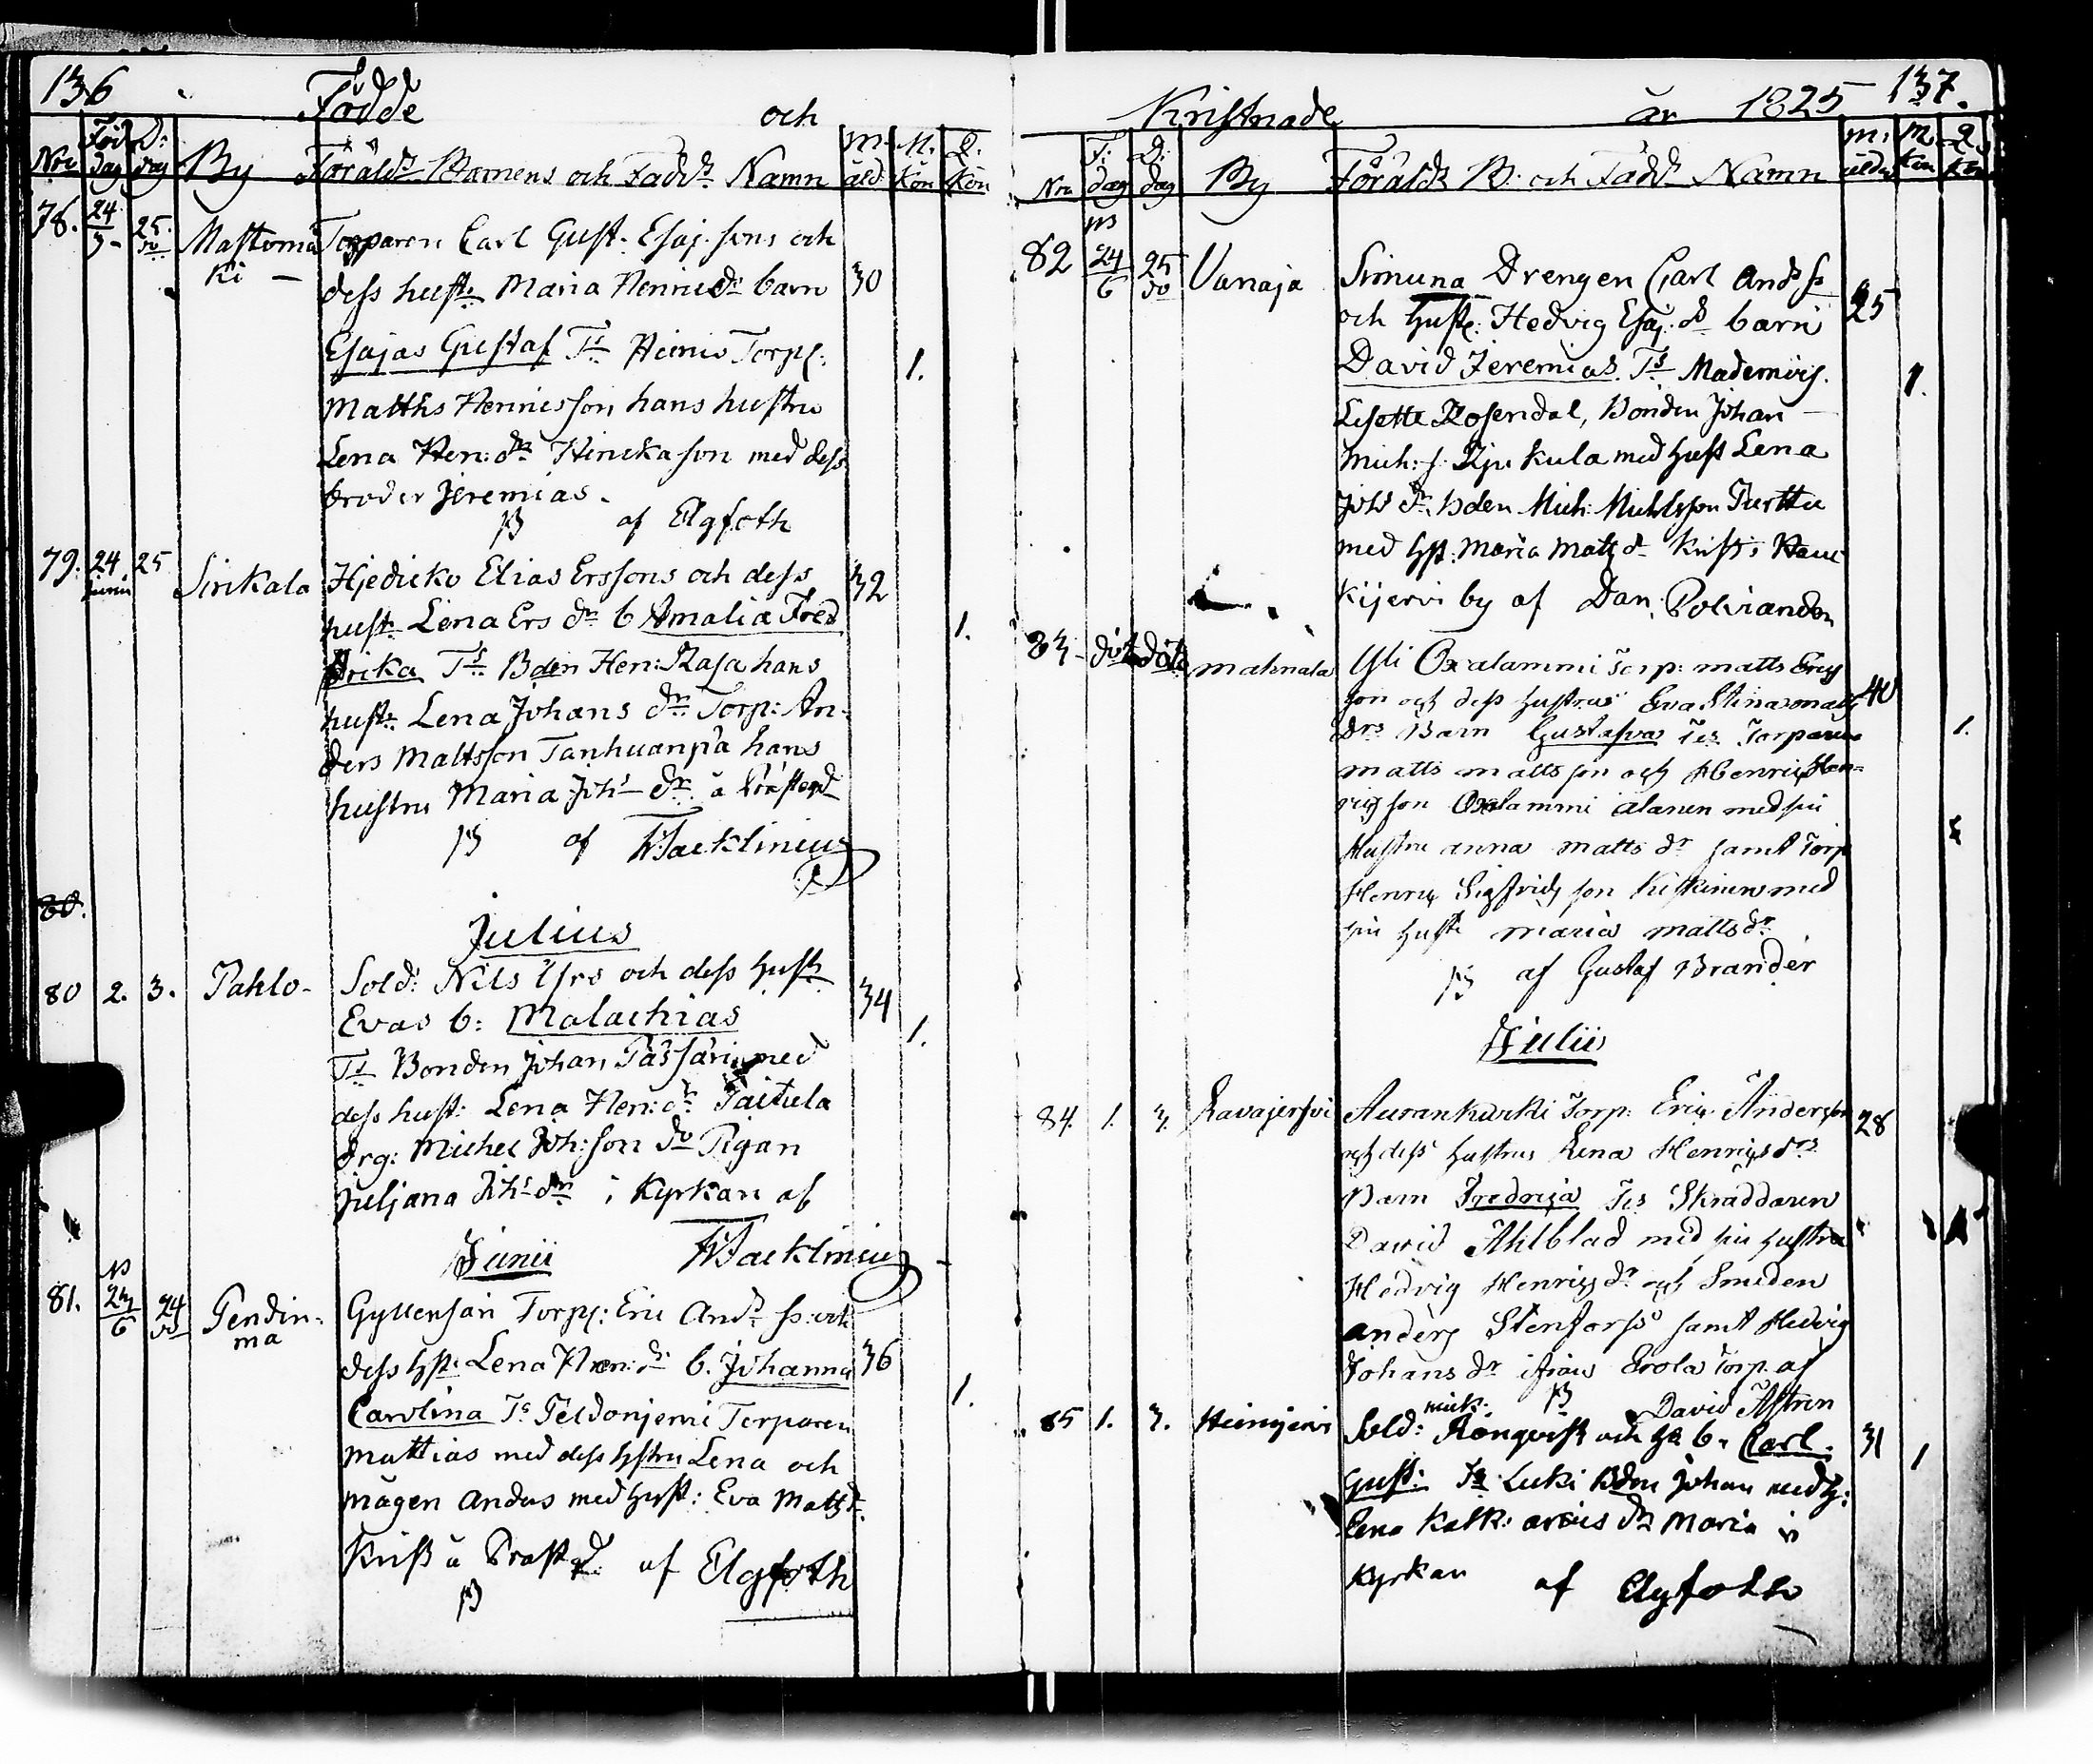 136
Födde och
Nro Föd dag D: dag By Föräldrs Barnens och Fadd:s Namn M. åld M. Kön Q. Kön
78. 24 25 do Mattomä
ki — Torparen Carl Gust. Esaj. sons och
dess hust: Maria Henricdr barn 30
Esajas Gustaf Ts Torp:
Matths Henricsson hans hustru 1.
Lena Hen: dr Hinickason med dess
broder Jeremias.
af Elgfoth
79. 24 Junii 25 Sirikala Hjedicko Elias Erssons och dess 32
hust: Lena Ers dr b Amalia Fred 1.
Erica Ts Bden Hen: Rasa hans
hust: Lena Johans dr Torp: An-
ders Mattsson Tanhuanpä hans
hustru Maria Joh:s dr å Prästgd
af W. Facklinius
80.
Julius
80 2. 3. Pahlo- Sold: Nils Yrs och dess hust: 34
Evas b: Malachias 1.
Ts Bonden Johan Passari med
dess hust: Lena Hen: dr Taitula
drg: Michel Joh: son do Pigan
Juljana Joh:s dr i Kyrkan af
Junii W. Facklinius
81. 23/6 24 do Pendin-
ma Gyllensari Torp: Eric And:s s: och
dess hst: Lena Hen: dr b. Johanna 36
Carolina Ts Peldonjemi Torparen 1.
Mattias med dess hstru Lena och
mågen Anders med hust: Eva Matts dr
Krist å Prästgd. af Elgfoth
Kristnade år 1825 137.
Nro F: dag D: dag By Föräldr B: och Fadd:r Namn M: ålder M. Kön Q. Kön
82 24/6 25 do Vanaja Simuna Drengen Carl Ands s: 25
och hust: Hedvig Esaj. dr barn
David Jeremias. Ts Mademois. 1.
Lisette Rosendal, Bonden Johan
Mich: s. kula med hust Lena
Johs dr, Bden Mich: Michlsson Turttu
med hst: Maria Matts dr Krist i Haui
kijervi by af Dan: Polviander
83 dito dito mahnala Yli Oxalammi Torp: matts Eric
son och dess hustrus Eva Stina matts 40
drs Barn Gustafva Tes Torparen 1.
matts matts son och Henric Hen-
ric son Oxalammi alanen med sin
Hustru anna matts dr samt Torp
Henric Sigfrids son Keskinen med
sin hustr maria matts dr
af Gustaf Brander
Julii
84. 1. 3. Lavajervi Aurankurki Torp: Eric Anderson 28
och dess hustrus Lena Henrics drs
Barn Fredrica Tes Skräddaren
David Ahlblad med sin hustru
Hedvig Henrics dr och Smeden
anders Stenforss samt Hedvig
Johans dr ifrån Erola Torp af
David Åstren
85 1. 3. Heinijervi Sold: mich. Rönqvist och h: b. Carl 31 1
Gust: Ts Luki Bden Johan med h:
Lena Katk: arvis dr Maria i
Kyrkan af Elgfoth